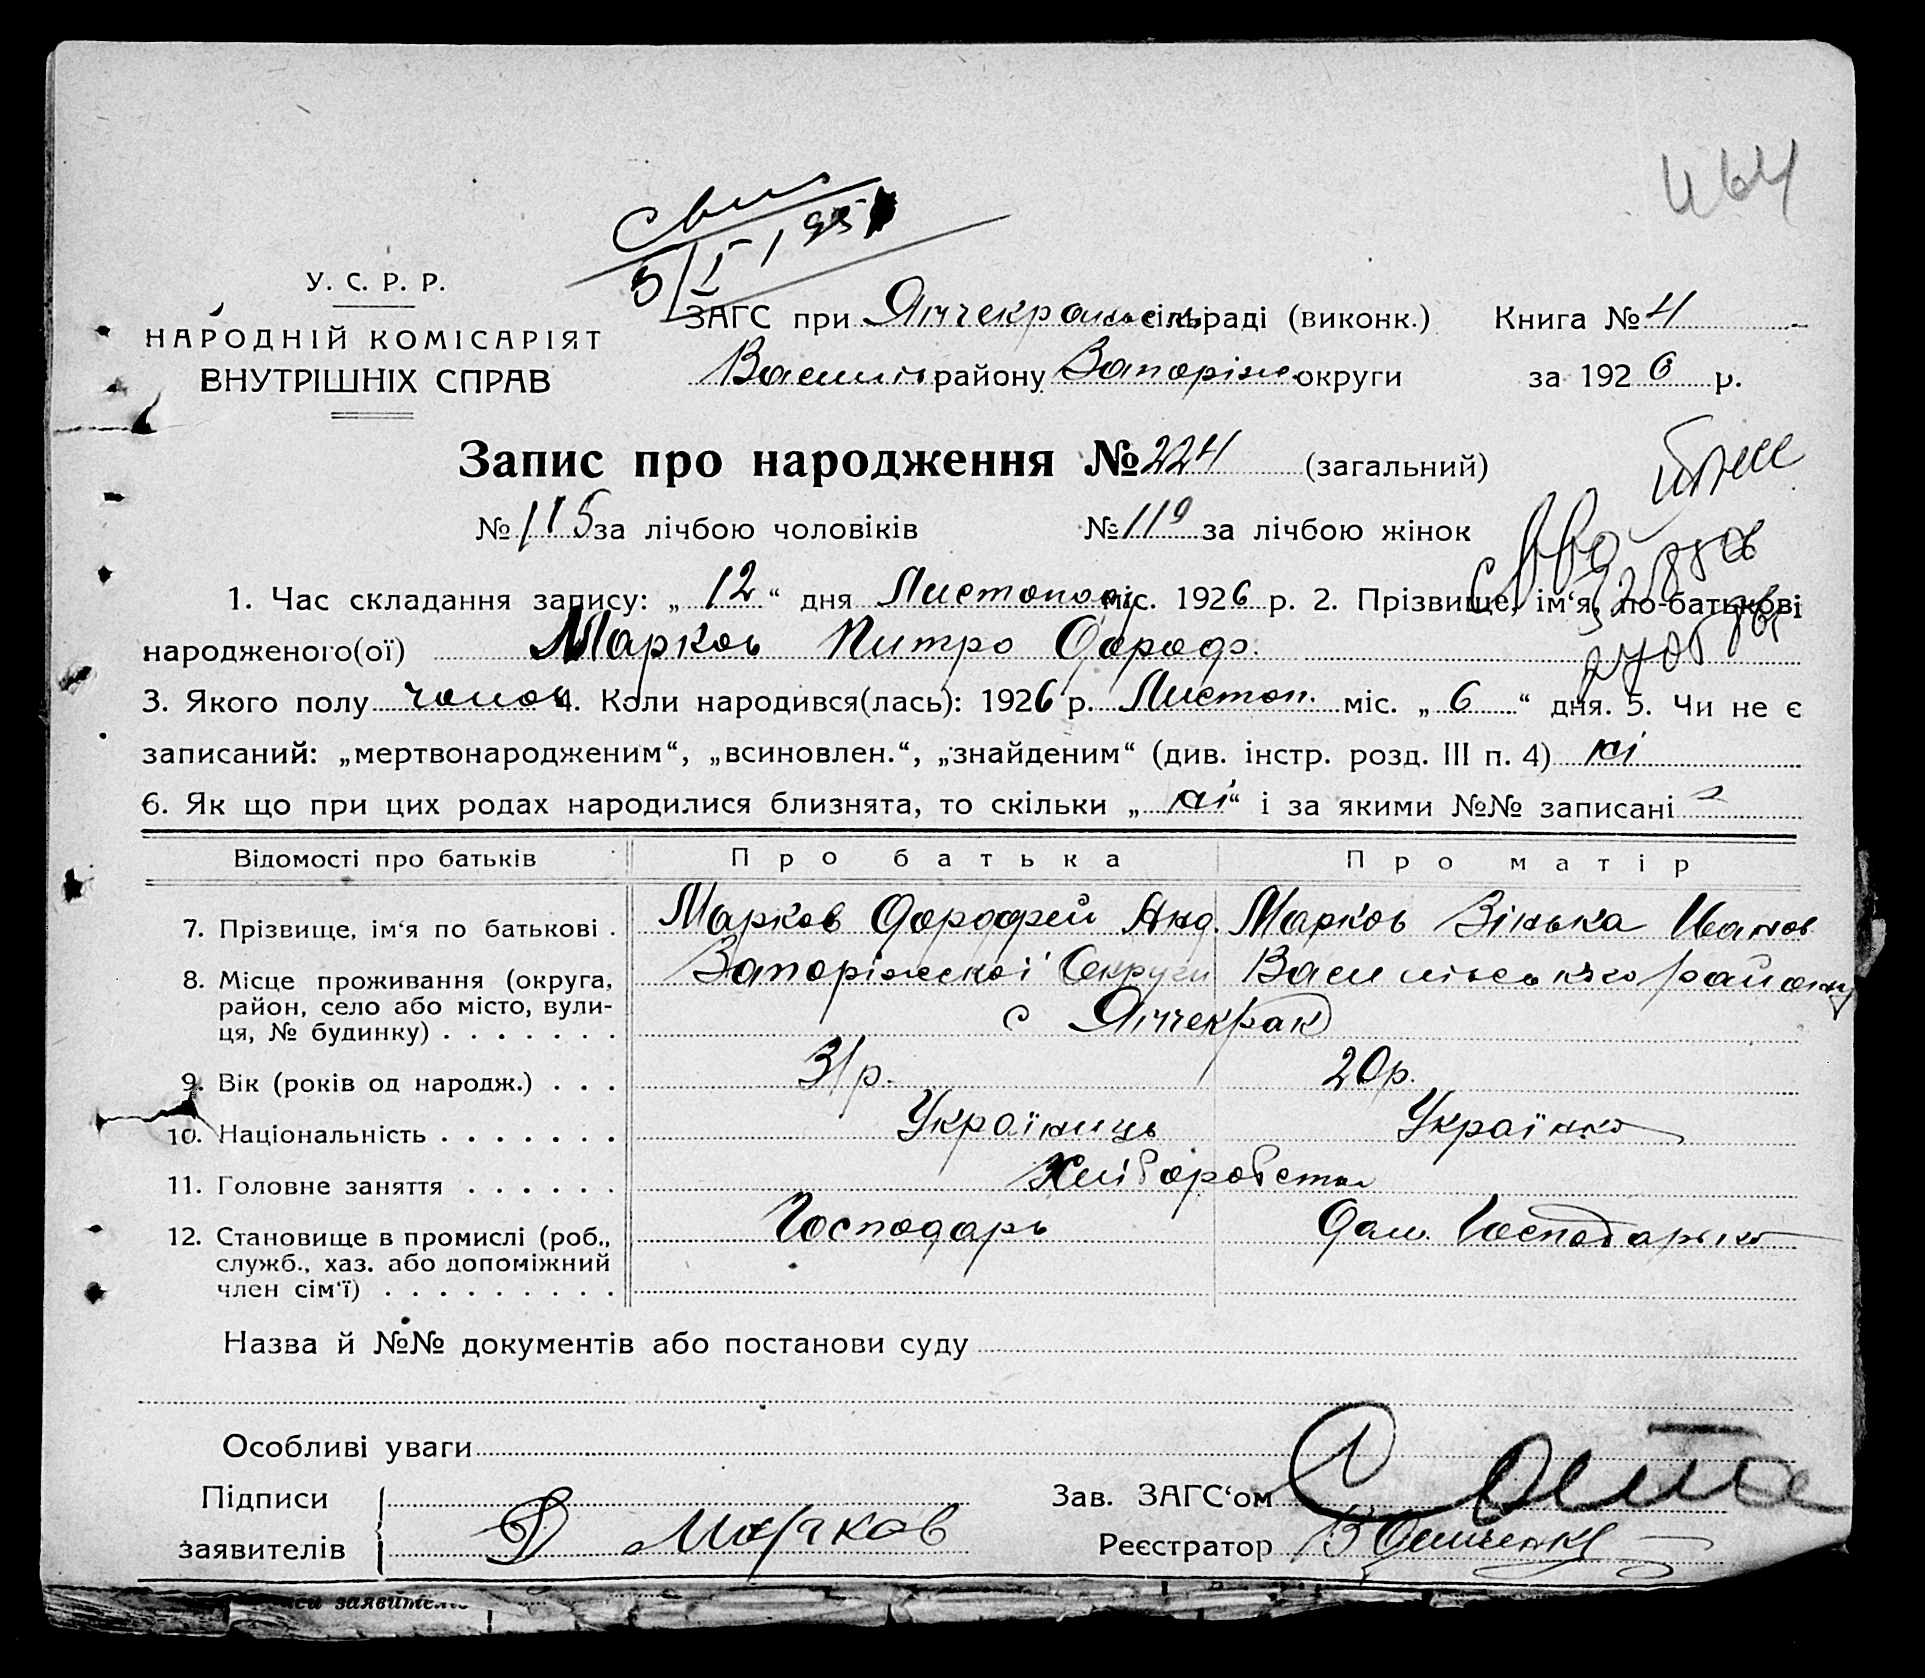 464
5/I 195
У. С. Р. Р.
НАРОДНІЙ КОМІСАРІЯТ
ВНУТРІШНІХ СПРАВ
ЗАГС при Янчекрань сільраді (виконк.) Книга № 4
Васильрайону Запоріж. округи за 1926 р.
Запис про народження № 224 (загальний)
№ 115 за лічбою чоловіків № 119 за лічбою жінок
1. Час складання запису: „ 12 “ дня Листопад міс. 1926 р. 2. Прізвище, ім‘я, по-батькові
народженого(ої) Марков Питро Дороф.
3. Якого полу чолов 4. Коли народився(лась): 1926 р. Листоп. міс. „ 6 “ дня. 5. Чи не є
записаний: „мертвонародженим“, „всиновлен.“, „знайденим“ (див. інстр. розд. III п. 4) ні
6. Як що при цих родах народилися близнята, то скільки „ ні “ і за якими №№ записані
Відомості про батьків Про батька Про матір
7. Прізвище, ім‘я по батькові . Марков Дорофей Анд. Марков Зінька Иванов
8. Місце проживання (округа, Запоріжської Округи Васильського району
район, село або місто, вули- с Янчекрак
ця, № будинку) . . . . . . .
9. Вік (років од народж.) . . . 31 р. 20 р.
10. Національність . . . . . . . Україниць Українка
11. Головне заняття . . . . . . Хліборобство
12. Становище в промислі (роб., Господарь Дом. Господарька
служб., хаз. або допоміжний
член сім‘ї) . . . . . . . . .
Назва й №№ документів або постанови суду
Особливі уваги
Підписи Зав. ЗАГС‘ом
заявителів Д Марков Реєстратор
заявителі